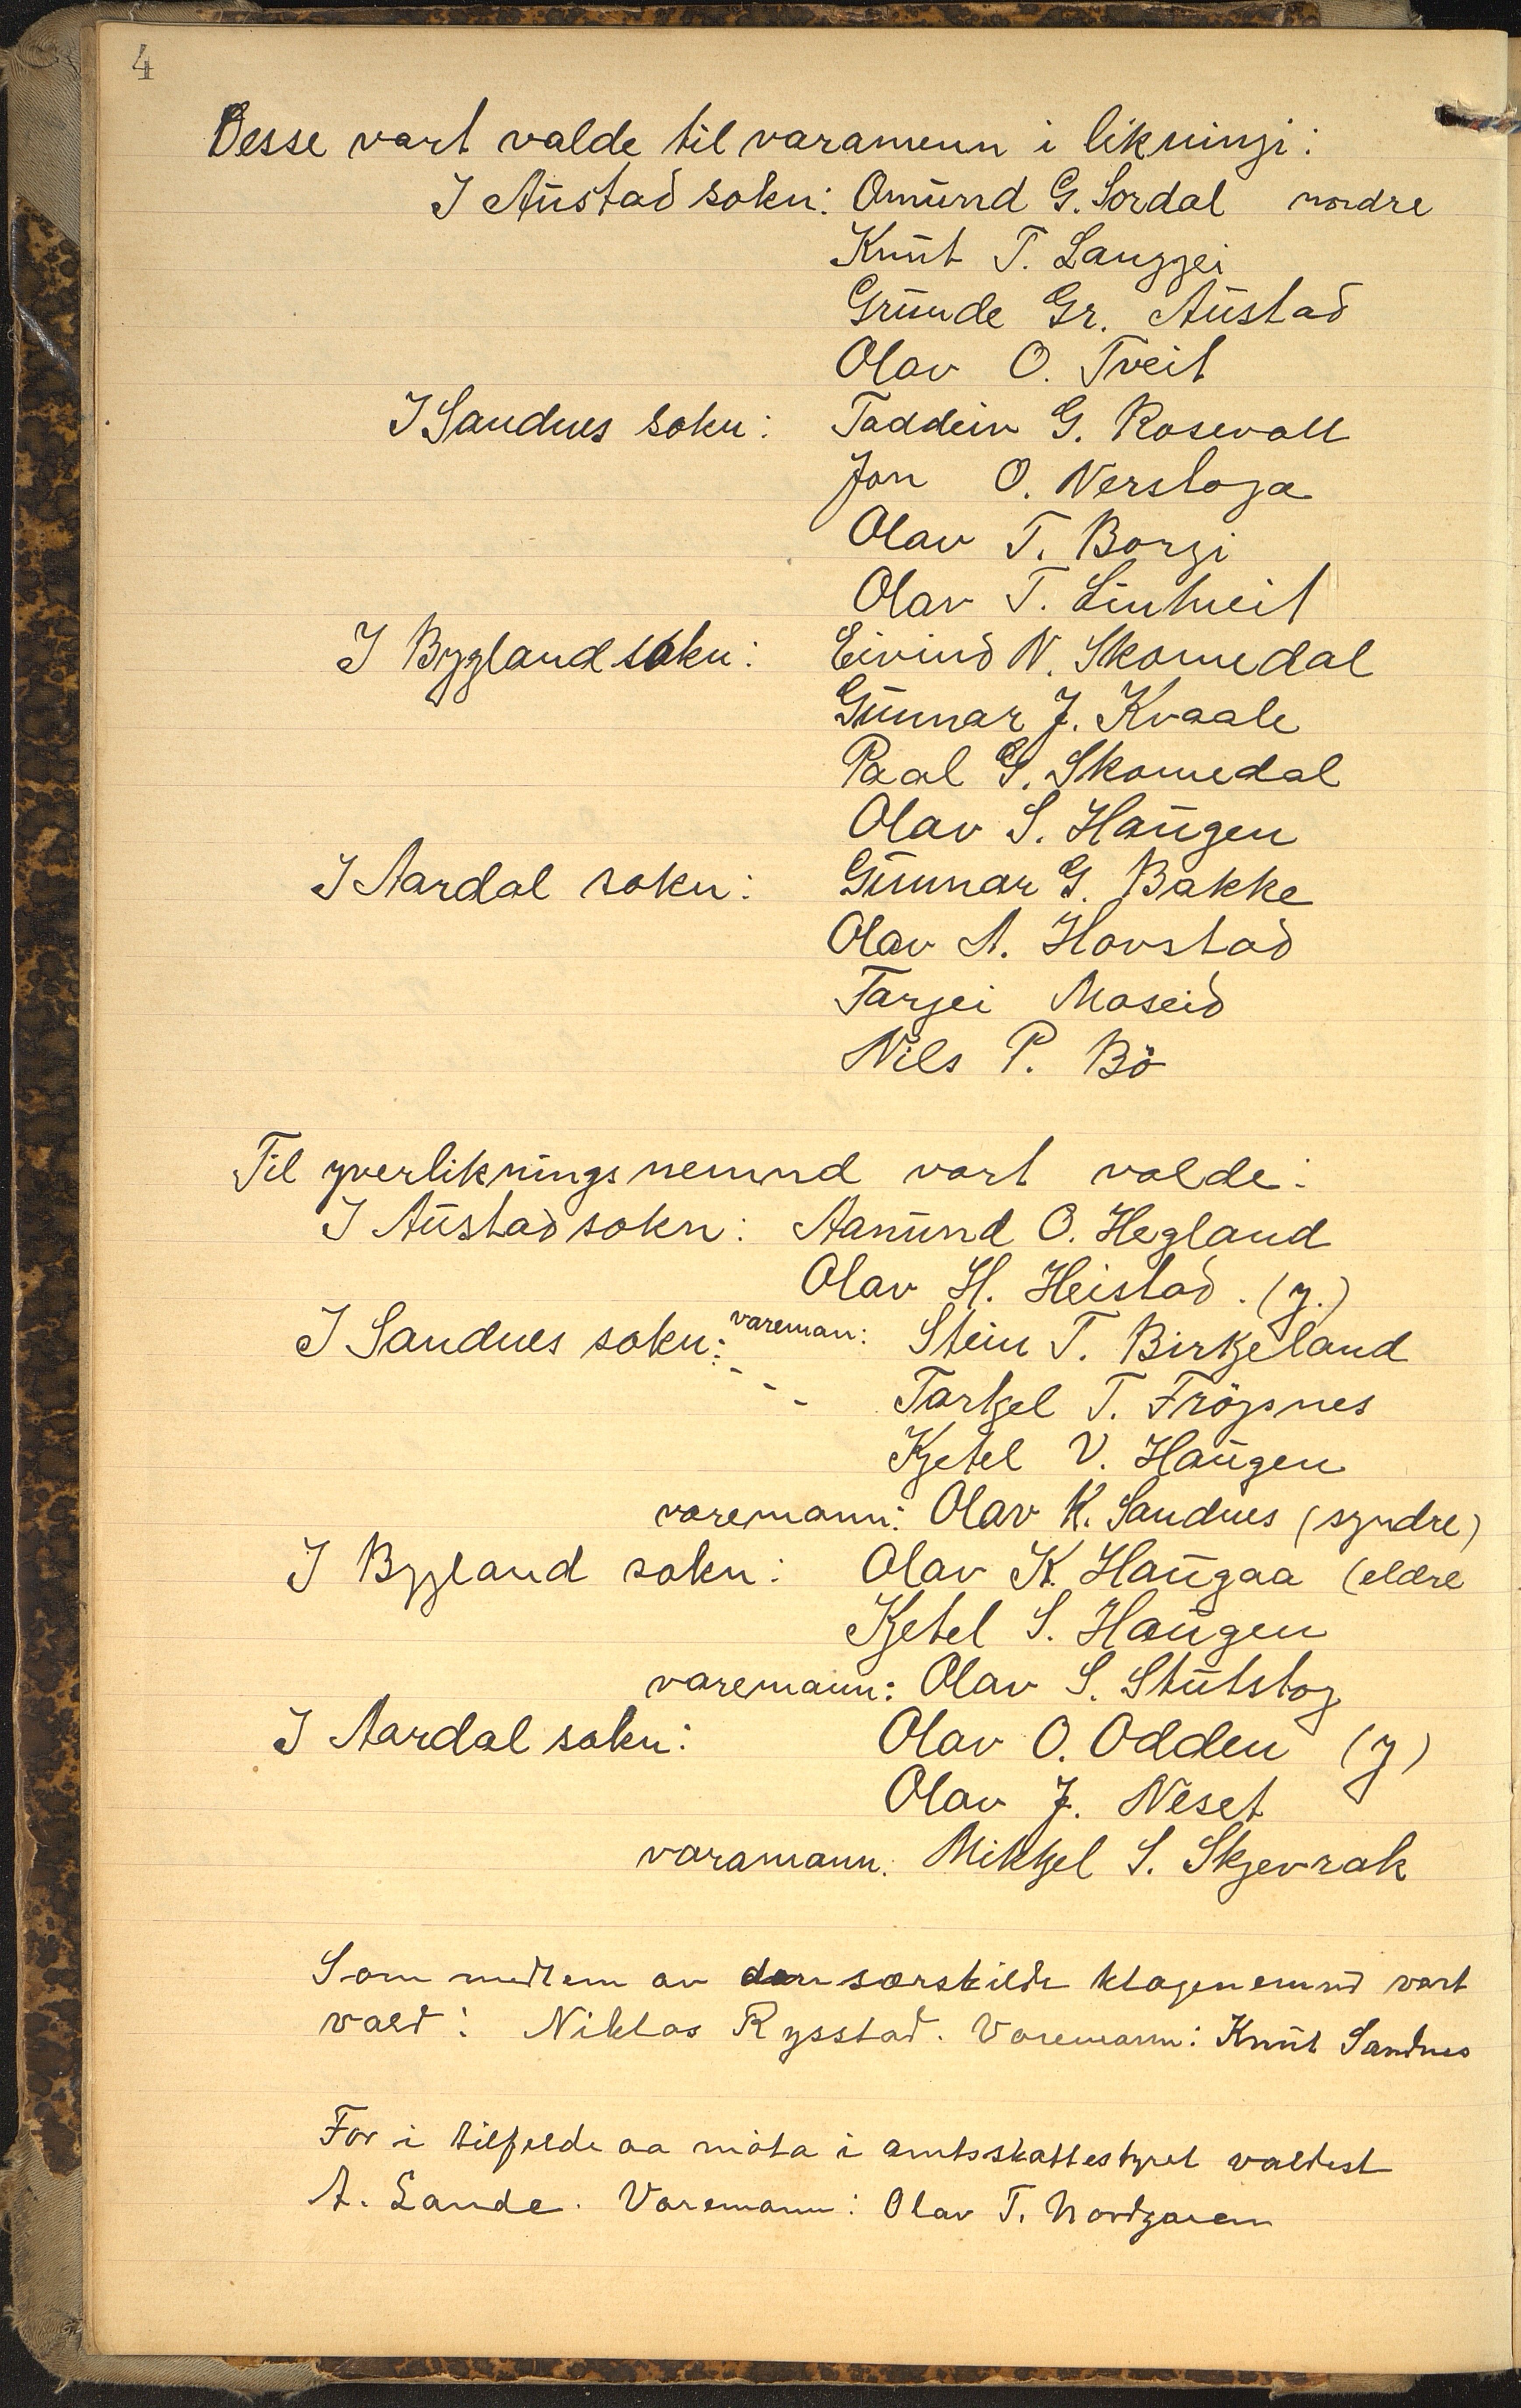 4
Desse vart valde til varamenn i likningi:
I Austad sokn: Omund G. Sordal nordre
Knut T. Langgei
Grunde Gr. Austad
Olav O. Tveit
I Sandnes sokn: Taddeiv G. Rosevall
Jon O. Nerstoga
Olav T. Borgi
Olav T. Lintveit
I Bygland sokn: Eivind N. Skomedal
Gunnar J. Kvaale
Paal G. Skomedal
Olav S. Haugen
I Aardal sokn: Gunnar G. Bakke
Olav A. Hovstad
Targei Moseid
Nils P. Bö
Til yverlikningsnemnd vart valde:
I Austad sokn: Aanund O. Hegland
Olav H. Heistad. (y.)
I Sandnes sokn: vareman: Stein T. Birkjeland
- - - Tarkjel T. Fröysnes
Kjetel V. Haugen
varemann: Olav K. Sandnes (syndre)
I Bygland sokn: Olav K. Haugaa (eldre
Kjetel S. Haugen
varemann: Olav S. Stutstog
I Aardal sokn: Olav O. Odden (y)
Olav J. Neset
varamann. Mikkjel S. Skjevrak
Som medlem av den særskilde klagenemnd vart
vald: Niklas Rysstad. Varemann: Knut Sandnes
For i tilfelde aa möta i amtsskattestyret valdest
A. Lande. Varemann: Olav T. Nordgaren